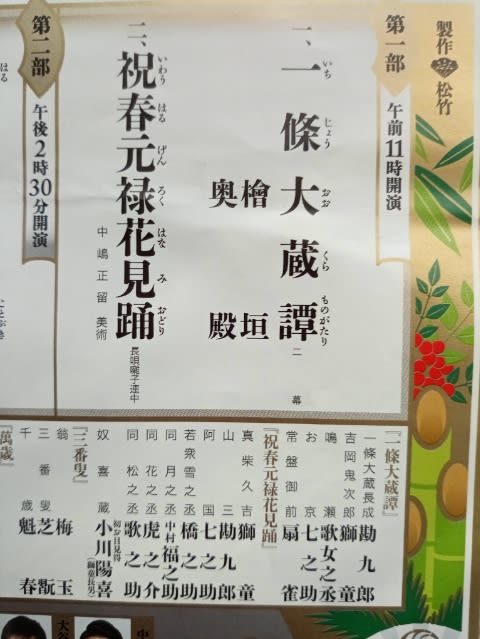 製作 松竹
第一部
午前11時開演
一、一條大蔵譚 二幕
いちじょうおおくらものがたり
檜垣
奥殿
二、祝春元禄花見踊 長唄囃子連中
いわうはるげんろくはなみおどり
中嶋正留 美術
第二部
午後2時30分開演
はる
『一條大蔵譚』
一條大蔵長成 勘九郎
吉岡鬼次郎 獅童
鳴瀬 歌女之丞
お京 七之助
常盤御前 扇雀
『祝春元禄花見踊』
真柴久吉 獅童
山三 勘九郎
阿国 七之助
若衆雪之丞 橋之助
同月之丞 中村福之助
同花之丞 虎之介
同松之丞 歌之助
奴喜蔵 初お目見得 小川陽喜（獅童長男）
『三番叟』
翁 梅玉
三番叟 芝翫
千歳 魁春
『萬歳』
中
大谷